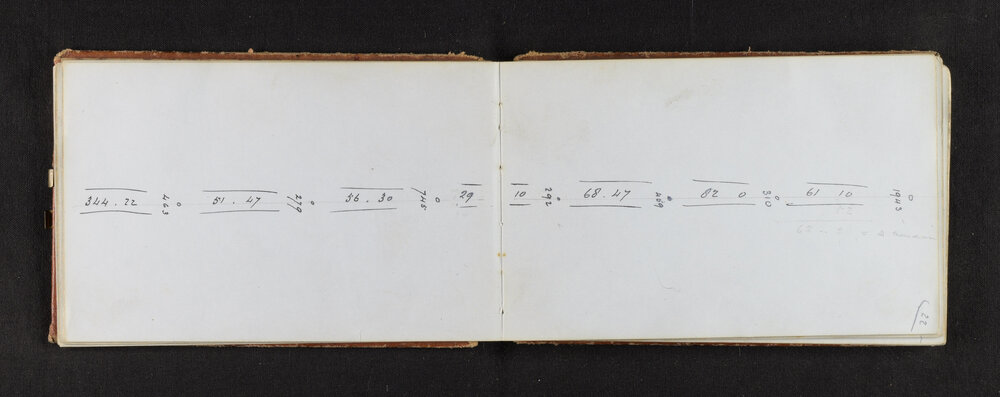 344.22 463 51.47 279 56.30 745 29 10 292 68.47 469 82 0 310 61 10 1943
22